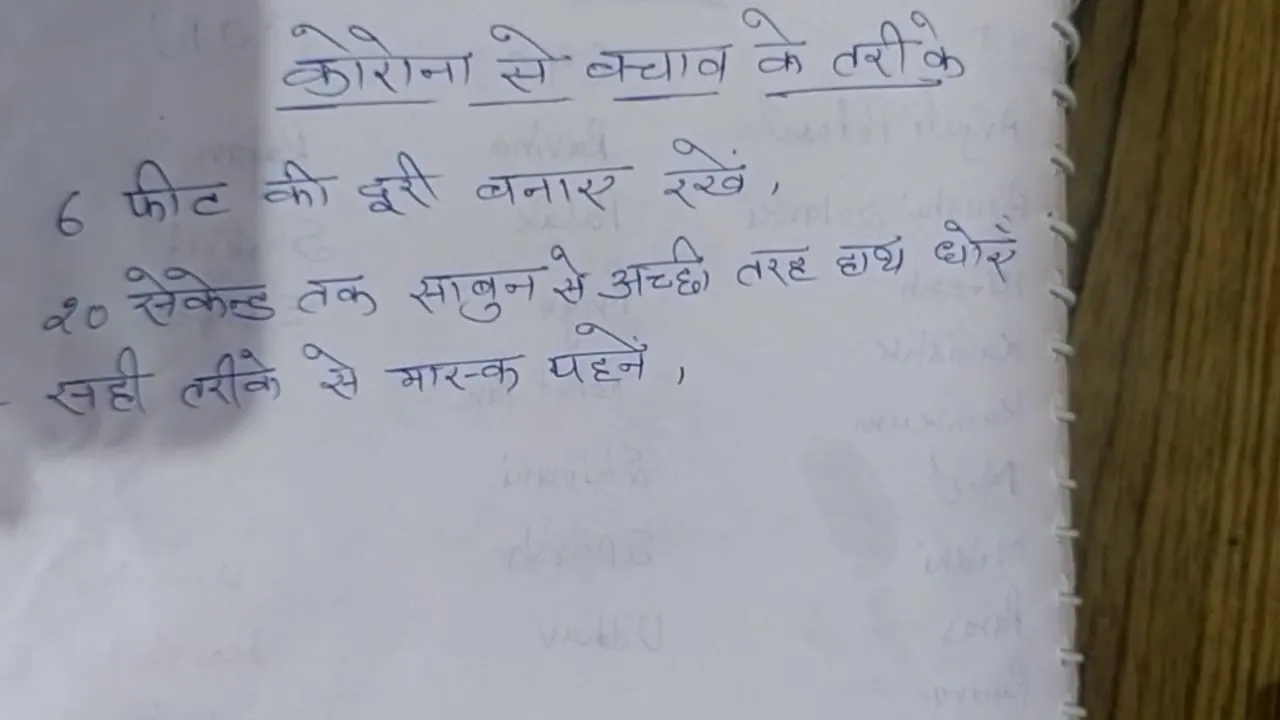 कोरोना से बचाव के तरीके
6 फीट की दूरी बनाए रखें,
२० सेकेन्ड तक साबुन से अच्छी तरह हाथ धोएँ
सही तरीके से मास्क पहनें,